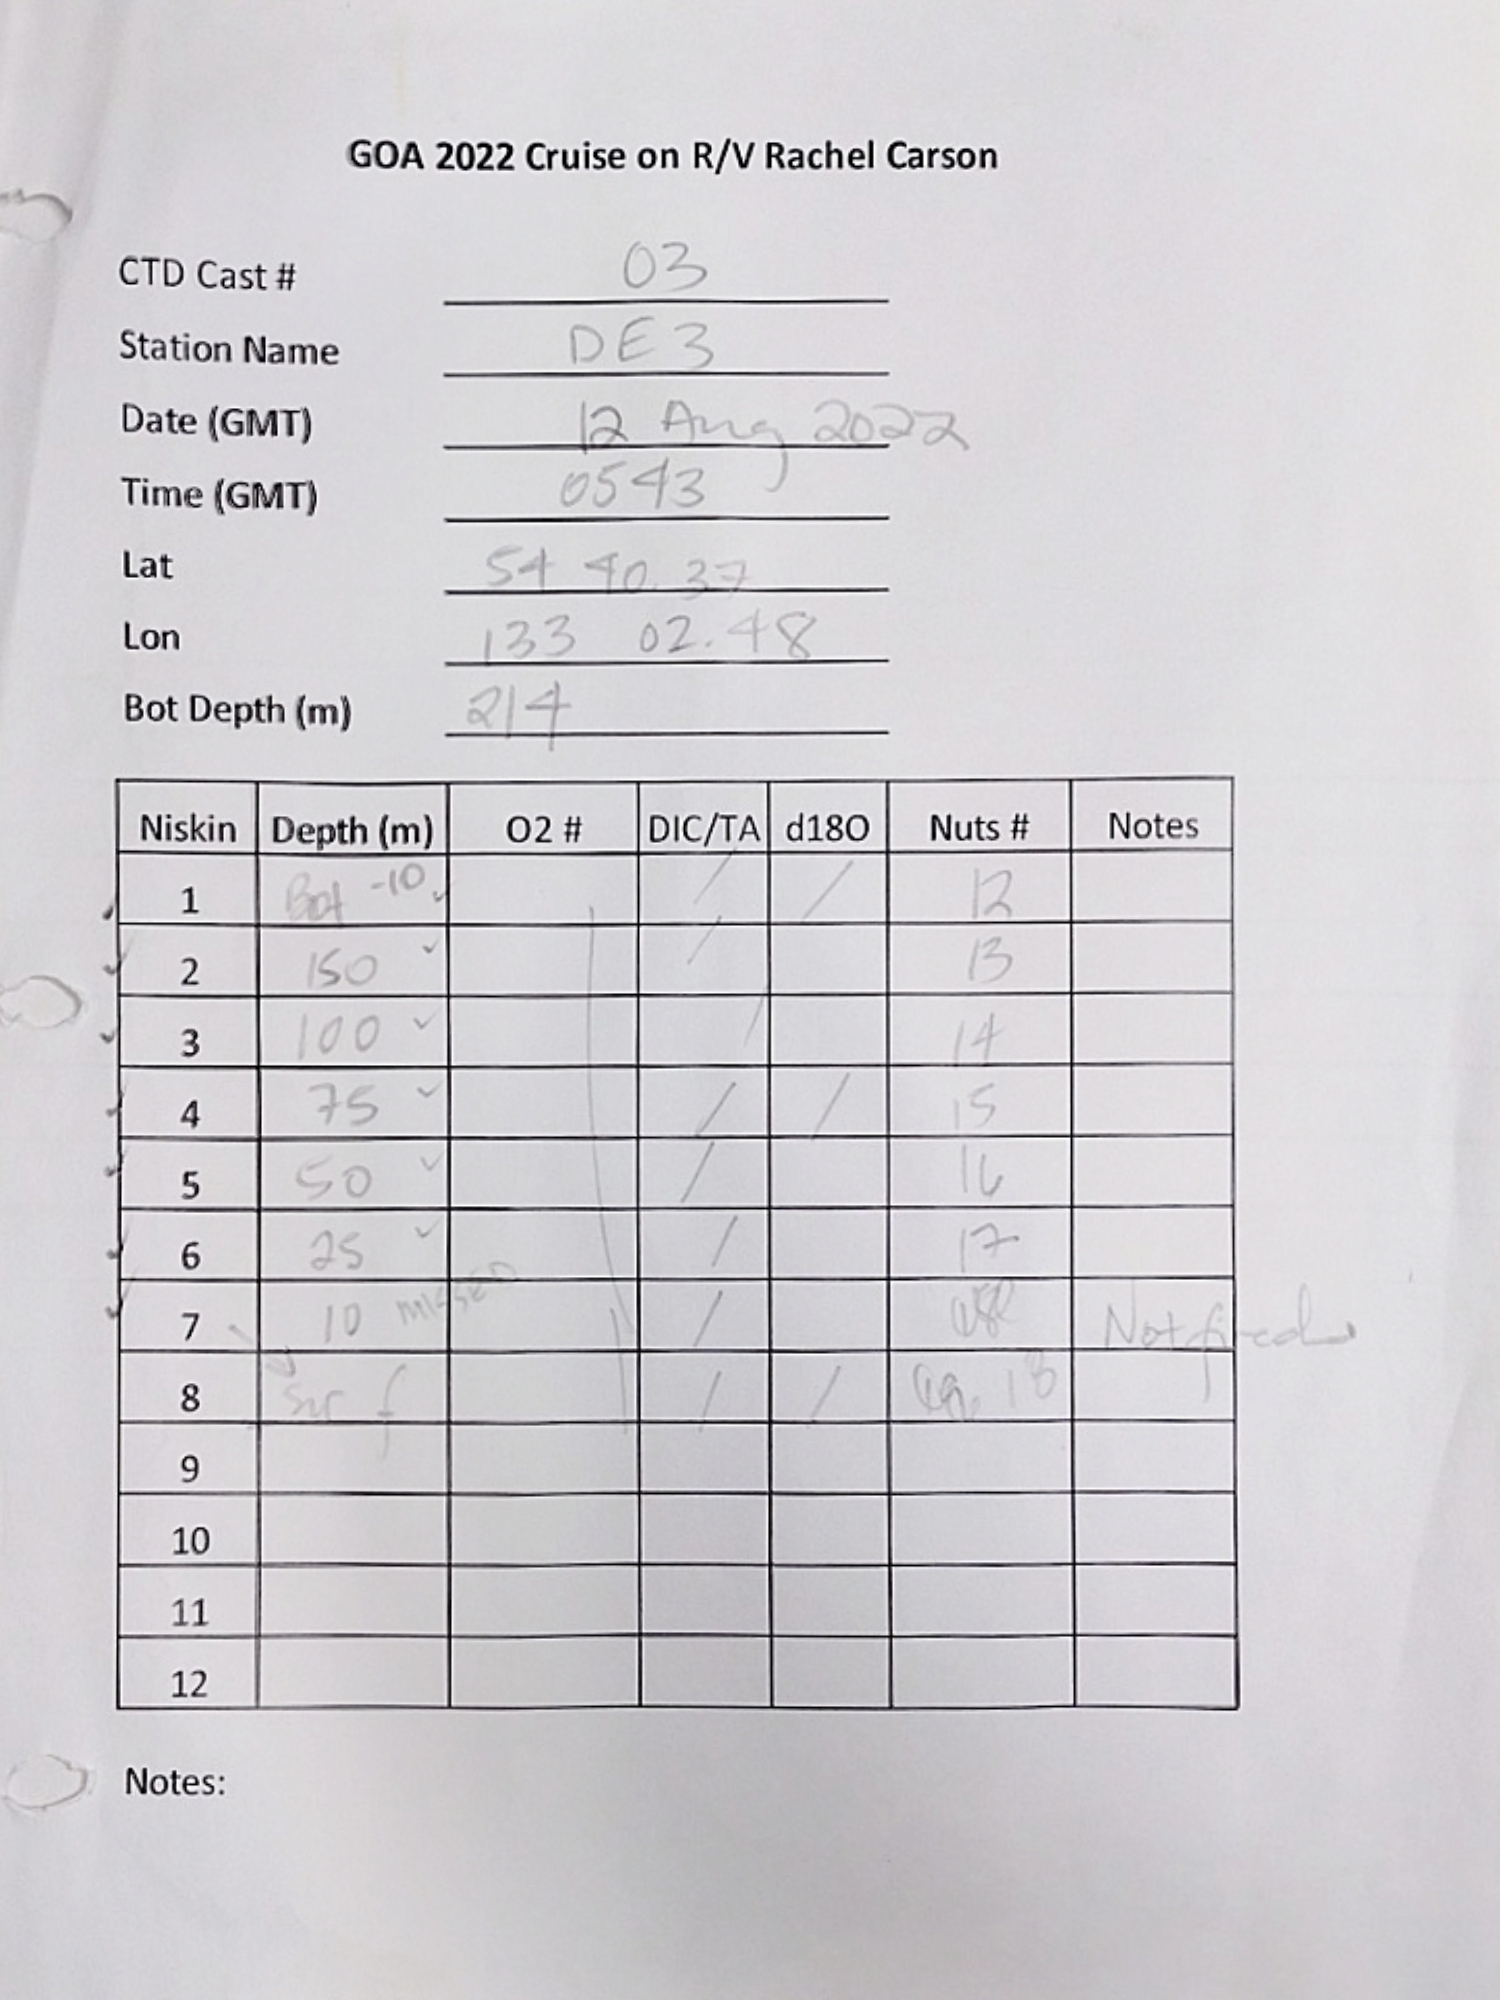 GOA 2022 Cruise on R/V Rachel Carson
CTD Cast # 03
Station Name DE3
Date (GMT) 12 Aug 2022
Time (GMT) 0543
Lat 54 40.37
Lon 133 02.48
Bot Depth (m) 214
Niskin Depth (m) O2 # DIC/TA d18O Nuts # Notes
1 Bot -10 ✓ / / 12
2 150 ✓ / 13
3 100 ✓ / 14
4 75 ✓ / / 15
5 50 ✓ / 16
6 25 ✓ / 17
7 10 MISSED / Not fired
8 Surf / / 18
9
10
11
12
Notes: